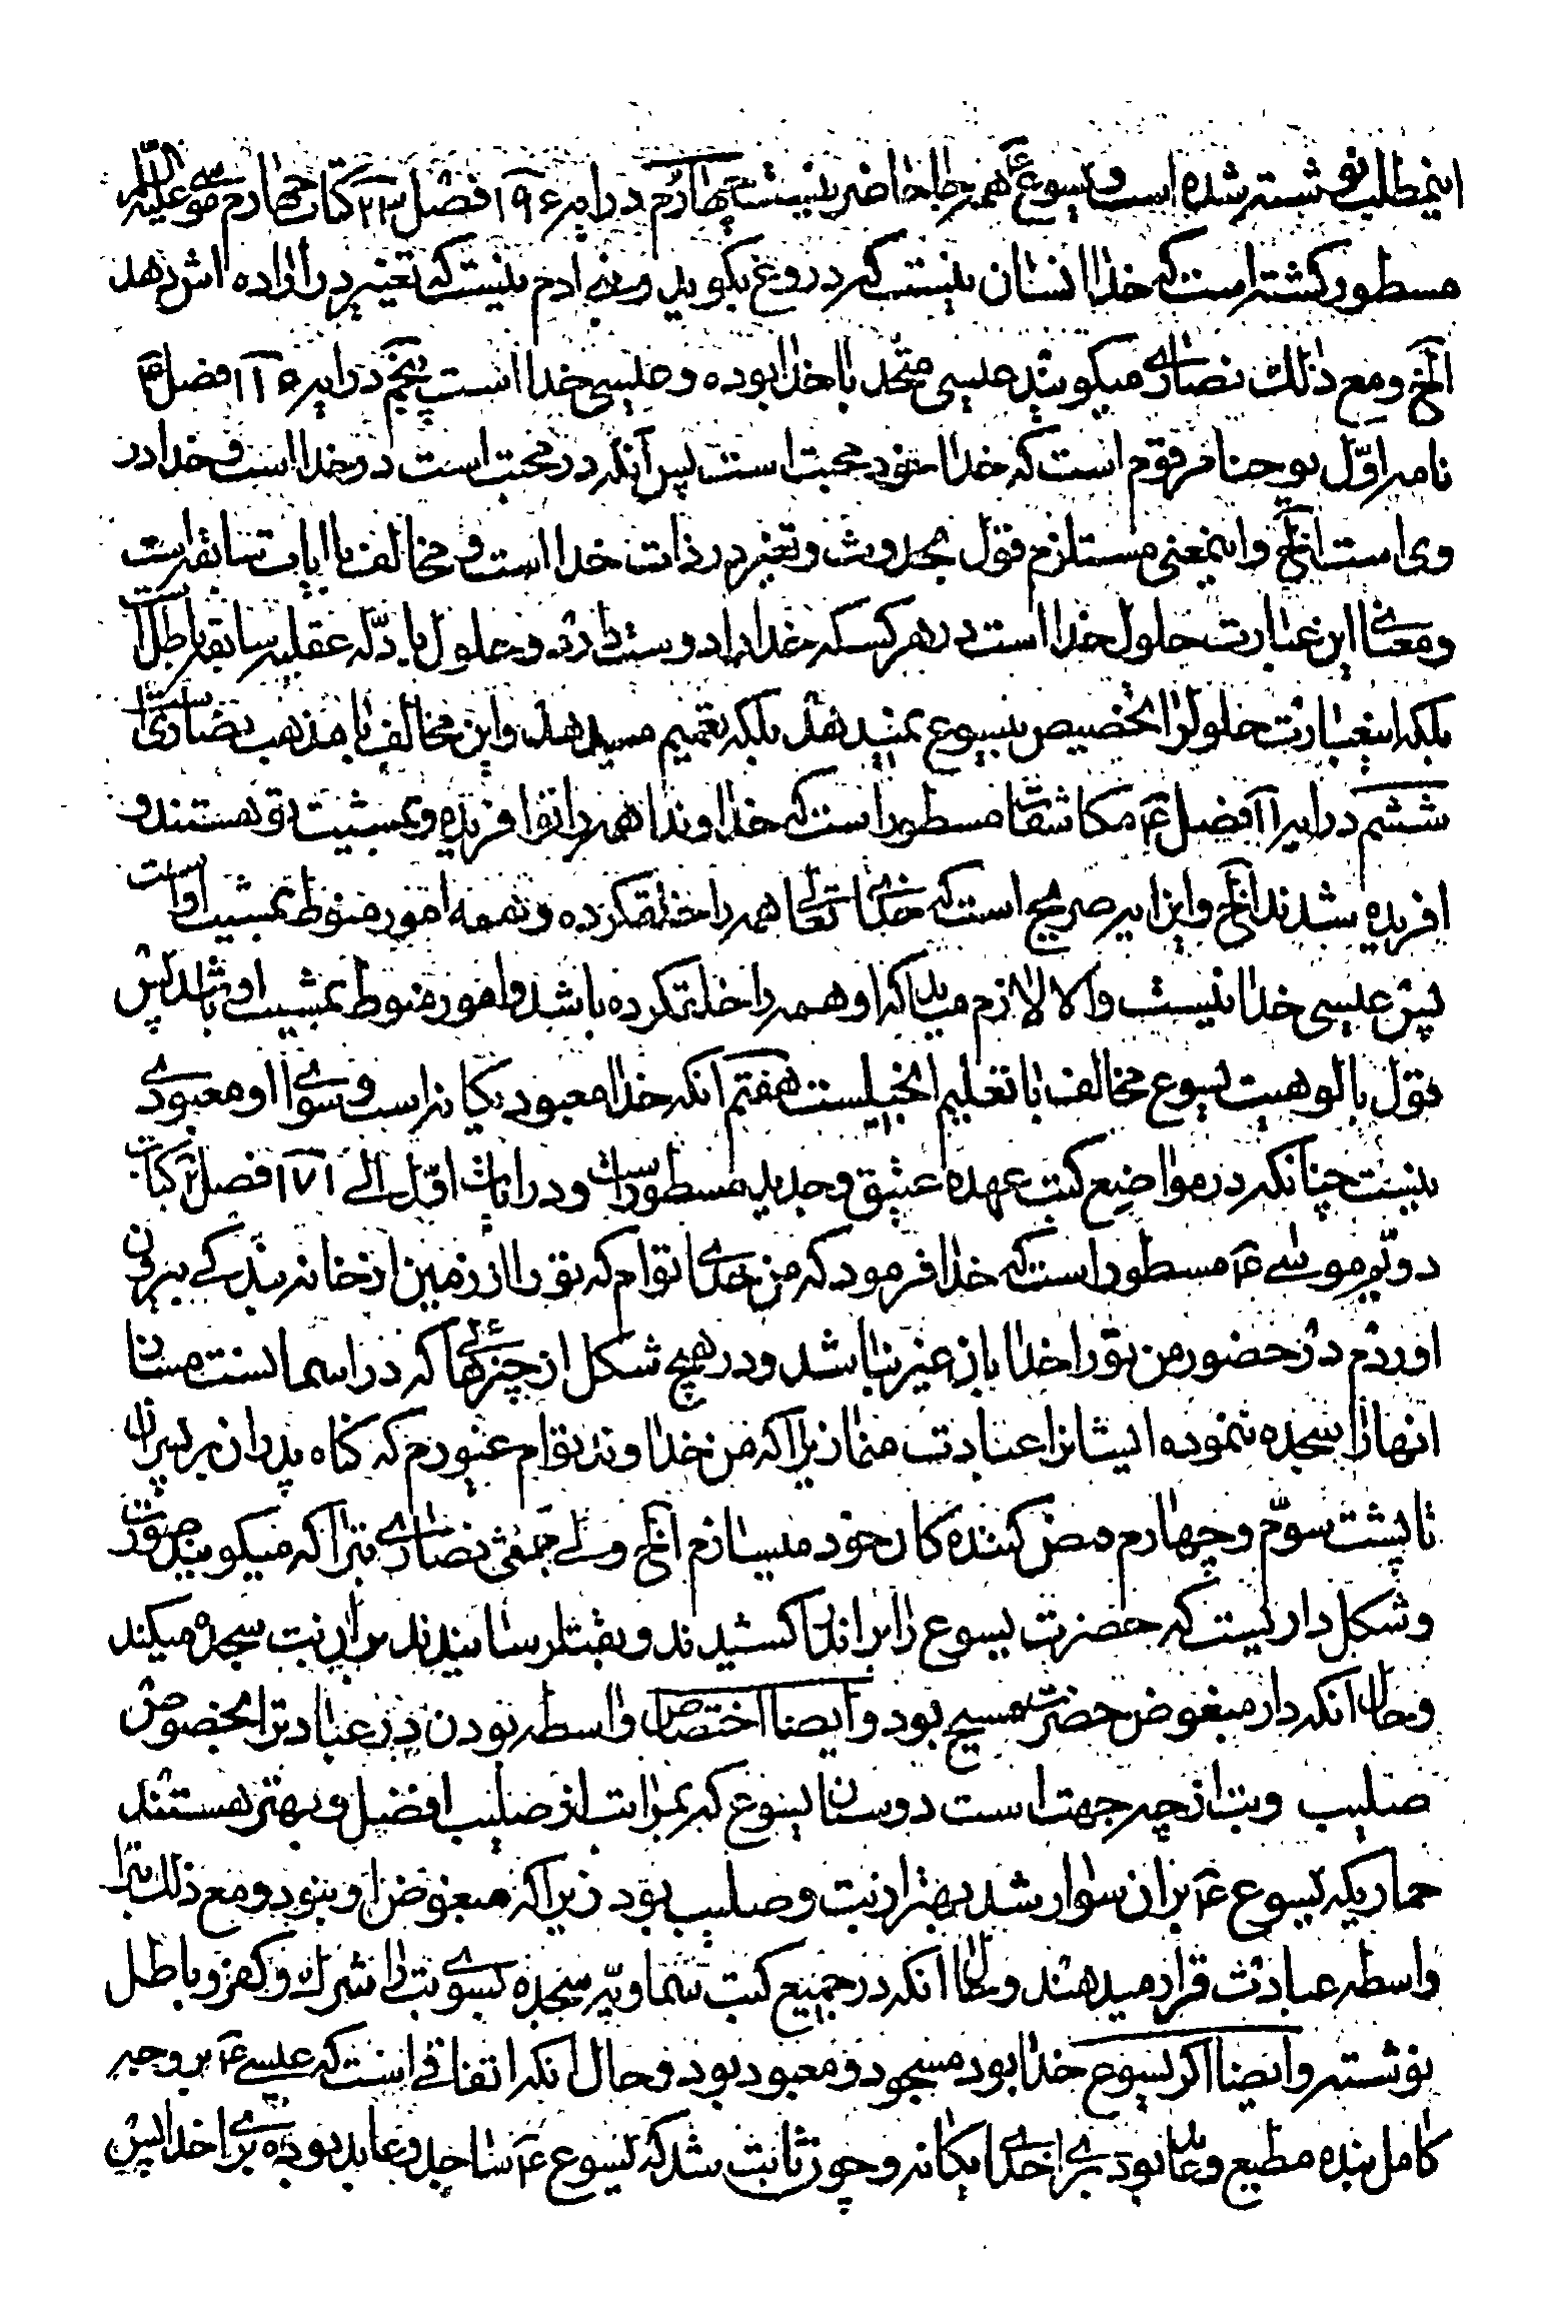 اینمطلب نوشته شده است و یسوع ع همه جا حاضر نیست چهارم در ایه ۱۹ ع فصل ۲۳ کتاب چهارم موسی علیه السلام
مسطور کشته است که خدا انسان نیست که دروغ بکوید و بنی ادم نیست که تغییر در اراده اش دهد
الخ و مع ذلك نصاری میکویند عیسی متحد با خدا بوده و عیسی خدا است پنجم در ایه ۱۶ فصل ۴
نامه اوّل یوحنا مرقوم است که خدا خود محبت است پس آنکه در محبت است در خدا است و خدا در
وی است الخ و اینمعنی مستلزم قول بحدوث و تغیر در ذات خدا است و مخالف با ایات سابقه است
و معنای این عبارت حلول خدا است در هر کسکه خدا را دوست دارد و حلول بادلّه عقلیه سابقه باطل است
بلکه اینعبارت حلول را تخصیص بیسوع نمیدهد بلکه تعمیم میدهد و این مخالف با مذهب نصاری است
ششم در ایه ۱۱ فصل ۴ مکاشفات مسطور است که خداوندا همه را تو افریدهٔ و بمشیت تو هستند و
افریده شدند الخ و این ایه صریح است که خدای تعالی همه را خلقکرده و همه امور منوط بمشیت او است
پس عیسی خدا نیست و الا لازم میاید که او همه را خلقکرده باشد و امور منوط بمشیت او باشد پس
قول بالوهیت یسوع مخالف با تعلیم انجیلست هفتم انکه خدا معبود یکانه است و سوای او معبودی
نیست چنانکه در مواضع کتب عهده عتیق و جدید مسطور است و در ایات اوّل الی ۱۷ فصل ۲۰ کتاب
دویّم موسی ع مسطور است که خدا فرمود که من خدای توام که تو را از زمین از خانه بندکی بیرون
اوردم در حضور من تو را خدایان غیر نباشد و در هیچ شکل از چیزهائی که در اسمانست مسان
انها را سجده ننموده ایشانرا عبادت منما زیرا که من خداوند توام غیورم که کناه پدران بر پسران
تا پشت سوّم و چهارم مبغض کننده کان خود میسازم الخ ولی جمعی نصاری بترا که میکویند صورت
و شکل داریست که حضرت یسوع را بر اندار کشیدند و بقتل رسانیدند بر ان بت سجده میکنند
و حال انکه دار مبغوض حضرت مسیح بود و ایضا اختصاص واسطه بودن در عبادترا بخصوص
صلیب و بت از چه جهت است دوستان یسوع که بمراتب از صلیب افضل و بهتر هستند
حماریکه یسوع ع بر ان سوار شد بهتر از بت و صلیب بود زیرا که مبغوض او نبود و مع ذلك بترا
واسطه عبادت قرار میدهند و حال انکه در جمیع کتب سماویّه سجده بسوی بت را شرك و کفر و باطل
نوشته و ایضا اکر یسوع خدا بود مسجود و معبود بود و حال انکه اتفاقی است که عیسی ع بر وجه
کامل بنده مطیع و عابد بود برای خدای یکانه و چون ثابت شد که یسوع ع ساجد و عابد بوده برای خدا پس